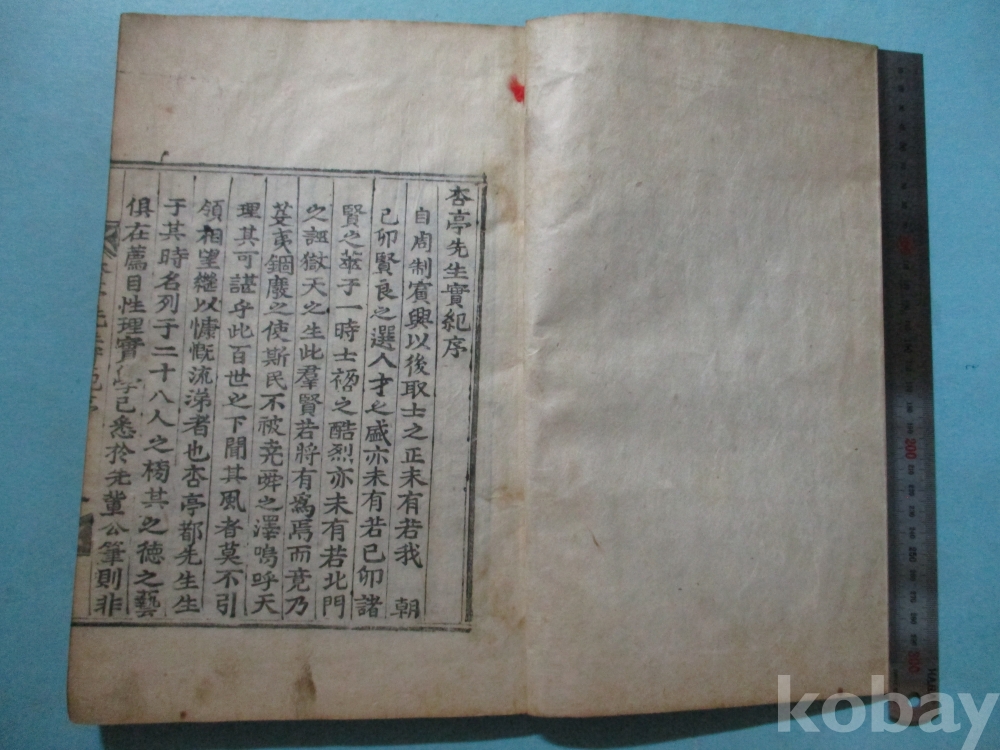 杏亭先生實紀序
自周制賓興以後取士之正未有若我 朝
己卯賢良之選人才之盛亦未有若己卯諸
賢之萃于一時士禍之酷烈亦未有若北門
之誣獄天之生此羣賢若將有爲焉而竟乃
芟夷錮廢之使斯民不被堯舜之澤嗚呼天
理其可諶乎此百世之下聞其風者莫不引
領相望繼以慷慨流涕者也杏亭都先生生
于其時名列于二十八人之榜其之德之藝
俱在薦目性理實學已悉於先輩公筆則非
200
kobay